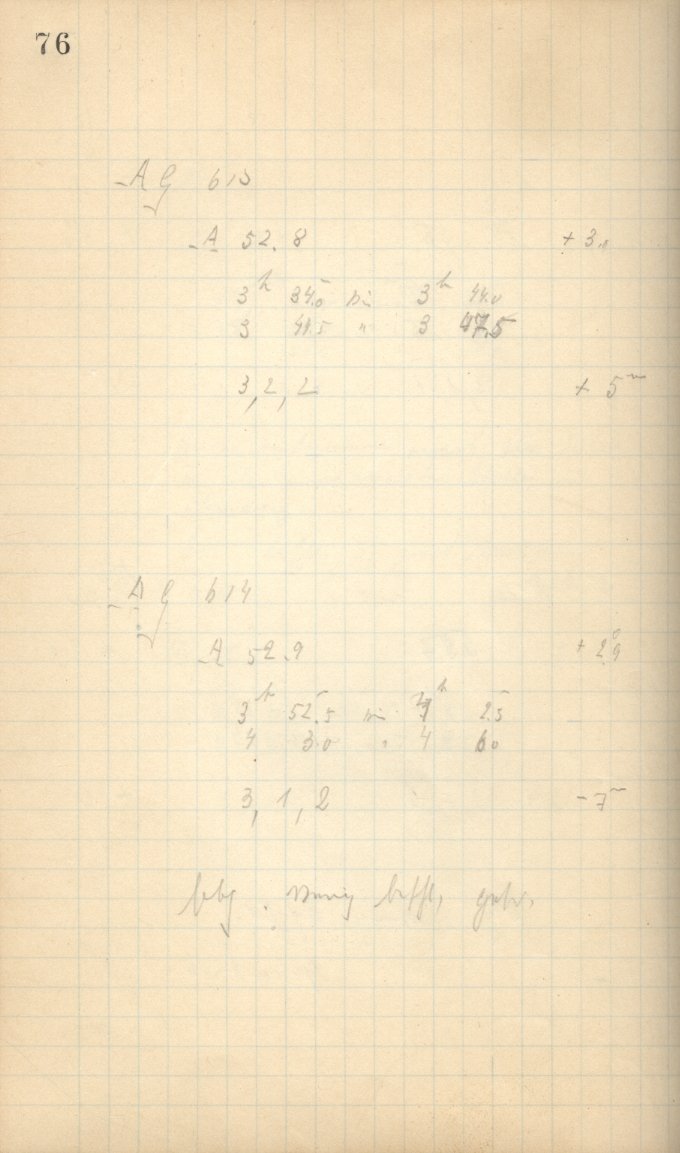 76
AG 613
A 52.8 + 3.
3h 34.0 bis 3h 44.0
3 41.5 " 3 47.5
3, 2, 2 + 5m
AG 614
A 52.9 + 2.9
3h 52.5 bis 4h 2.5
4 3.0 " 4 6.0
3, 1, 2 - 7m